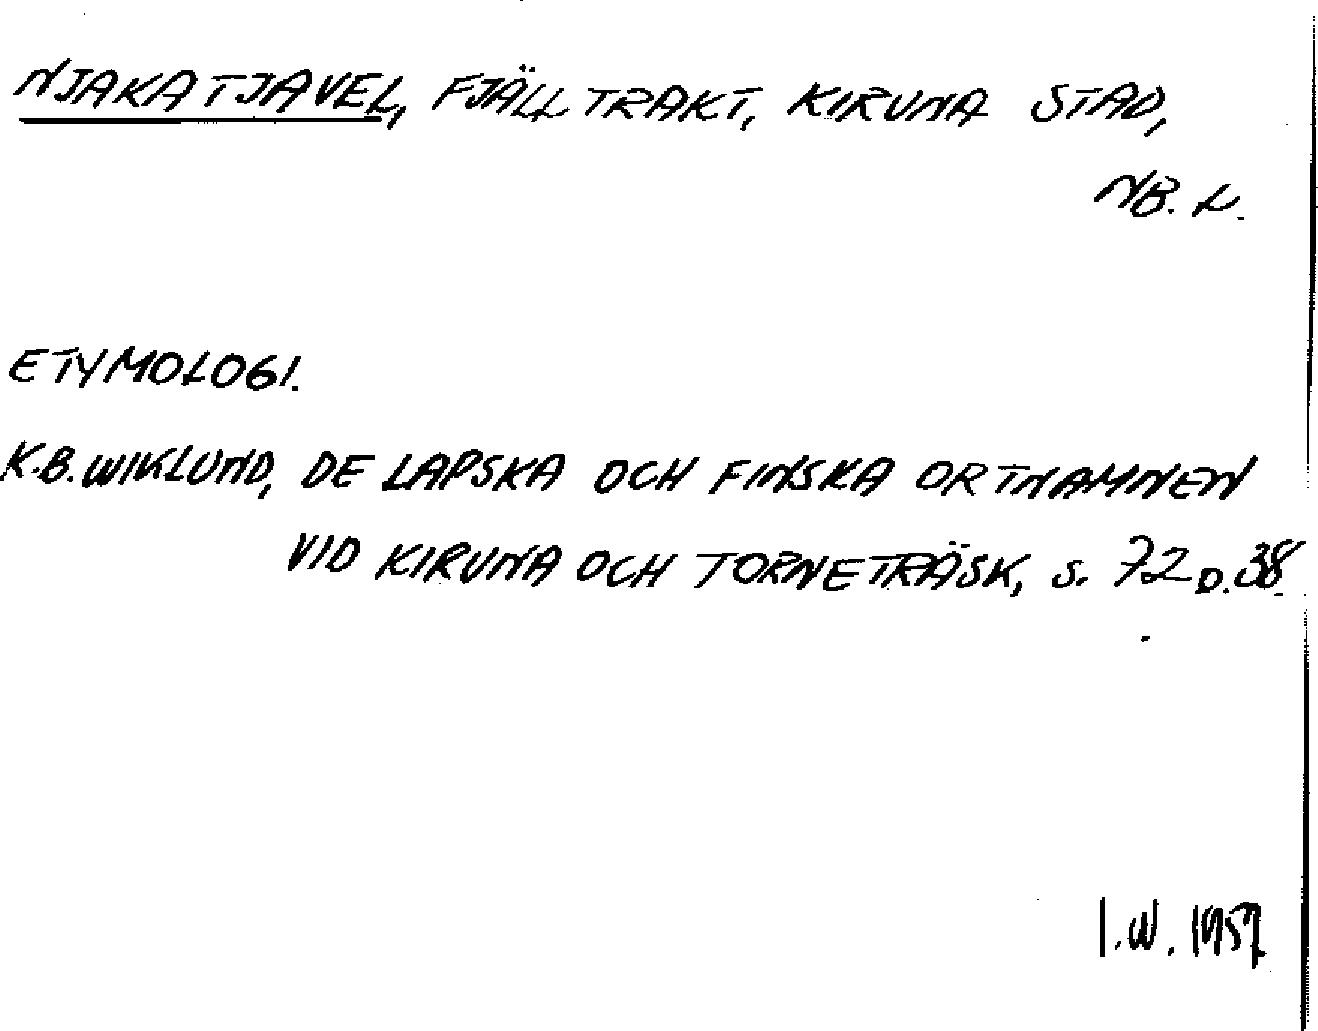 NJAKATJAVEL, FJÄLLTRAKT, KIRUNA STAD,
NB. L.
ETYMOLOGI.
K.B. WIKLUND, DE LAPSKA OCH FINSKA ORTNAMNEN
VID KIRUNA OCH TORNETRÄSK, S. 72 o. 38.
I.W. 1957